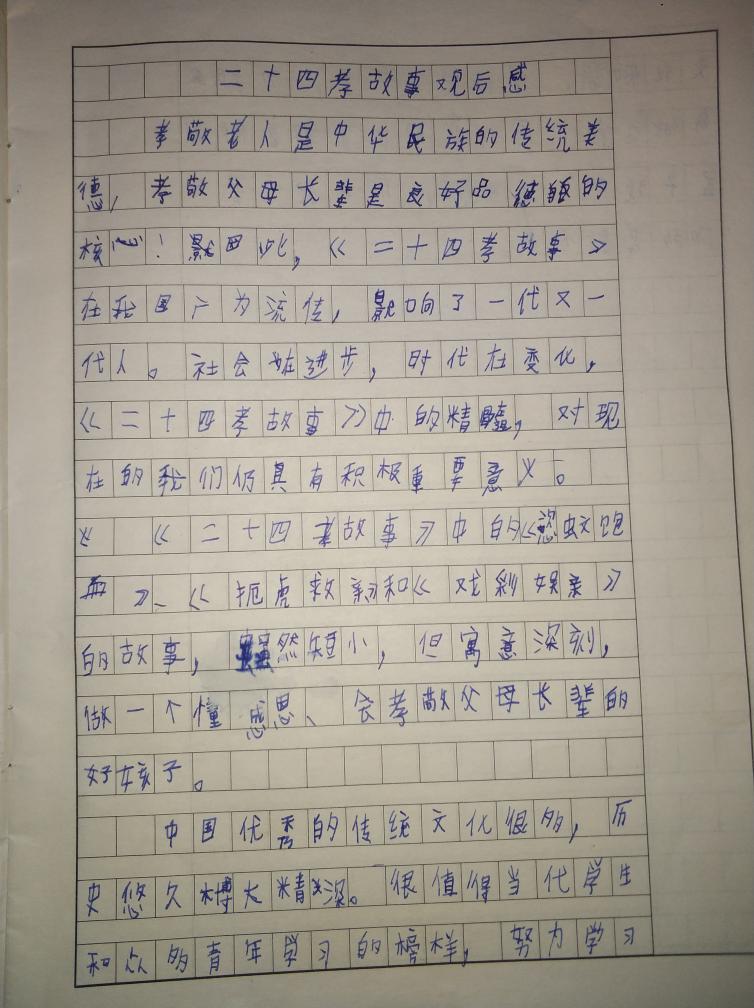 二十四孝故事观后感
孝敬老人是中华民族的传统美
德，孝敬父母长辈是良好品德的
核心！因此，《二十四孝故事》
在我国广为流传，影响了一代又一
代人。社会在进步，时代在变化，
《二十四孝故事》中的精髓，对现
在的我们仍具有积极重要意义。
《二十四孝故事》中的《恣蚊饱
血》、《扼虎救亲》和《戏彩娱亲》
的故事，虽然短小，但寓意深刻，
做一个懂感恩、会孝敬父母长辈的
好孩子。
中国优秀的传统文化很多，历
史悠久博大精深。很值得当代学生
和众多青年学习的榜样，努力学习